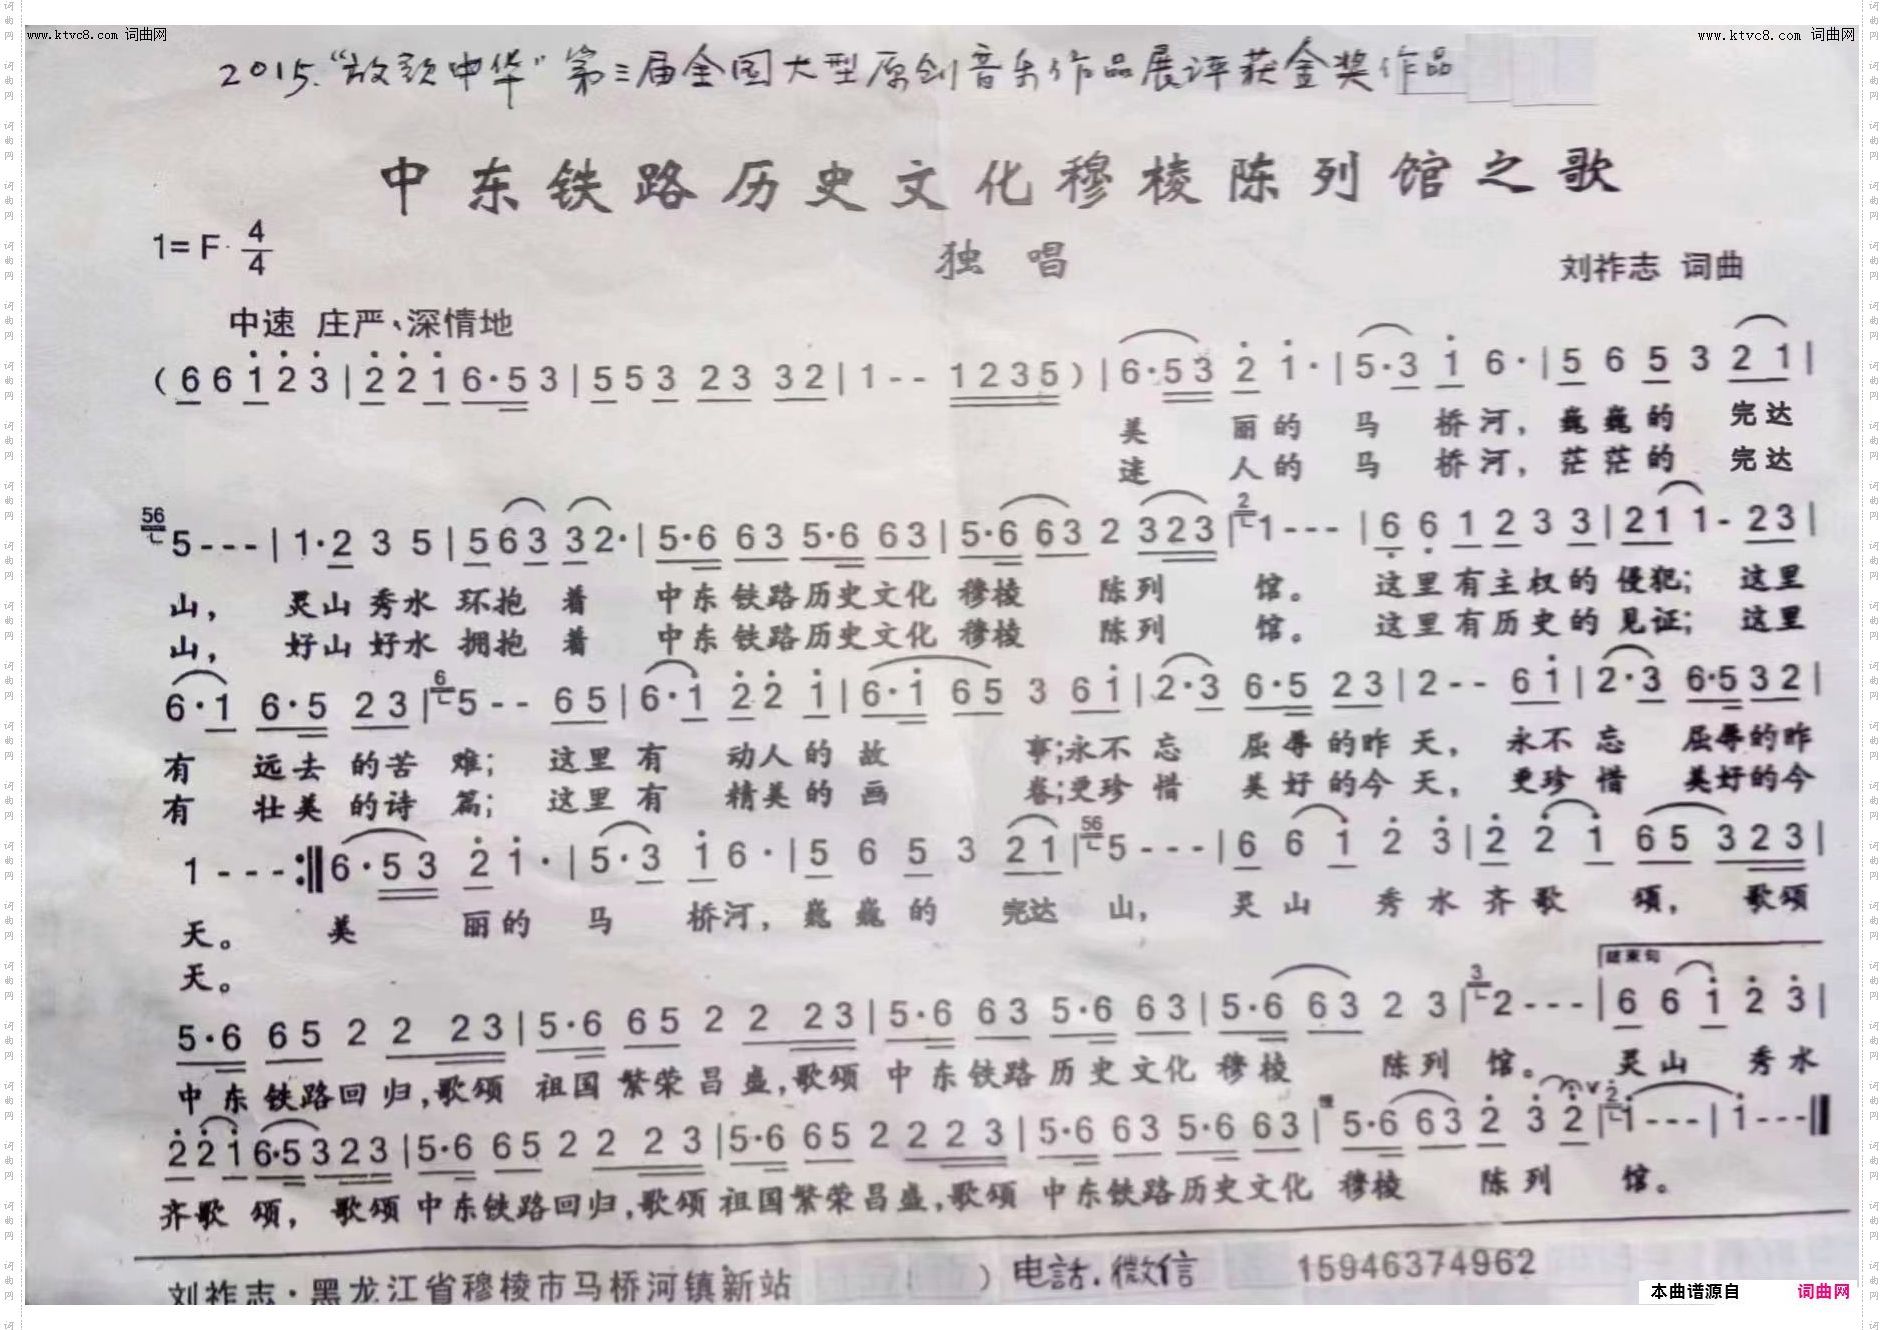 www.ktvc8.com 词曲网
www.ktvc8.com 词曲网
2015.“放歌中华”第三届全国大型原创音乐作品展评获金奖作品
中东铁路历史文化穆棱陈列馆之歌
1=F 4/4
独唱
刘祚志 词曲
中速 庄严、深情地
(6 6 1̇ 2̇ 3̇ | 2̇ 2̇ 1̇ 6·5 3 | 5 5 3 2 3 3 2 | 1 - - 1 2 3 5) | 6·5 3 2̇ 1̇· | 5·3 1̇ 6· | 5 6 5 3 2 1 |
美 丽的 马 桥河, 巍巍的 完达
迷 人的 马 桥河, 茫茫的 完达
56 5 - - - | 1·2 3 5 | 5 6 3 3 2· | 5·6 6 3 5·6 6 3 | 5·6 6 3 2 3 2 3 | 2 1 - - - | 6̣ 6̣ 1 2 3 3 | 2 1 1 - 2 3 |
山, 灵山秀水 环抱 着 中东铁路历史文化 穆棱 陈列 馆。 这里有主权的 侵犯; 这里
山, 好山好水 拥抱 着 中东铁路历史文化 穆棱 陈列 馆。 这里有历史的 见证; 这里
6·1 6·5 2 3 | 6 5 - - 6 5 | 6·1̇ 2̇ 2̇ 1̇ | 6·1̇ 6 5 3 6 1̇ | 2·3 6·5 2 3 | 2 - - 6 1̇ | 2·3 6·5 3 2 |
有 远去 的苦 难; 这里有 动人的故 事;永不忘 屈辱的昨天, 永不忘 屈辱的昨
有 壮美 的诗 篇; 这里有 精美的画 卷;更珍惜 美好的今天, 更珍惜 美好的今
1 - - - :‖ 6·5 3 2̇ 1̇· | 5·3 1̇ 6· | 5 6 5 3 2 1 | 56 5 - - - | 6 6 1̇ 2̇ 3̇ | 2̇ 2̇ 1̇ 6 5 3 2 3 |
天。 美 丽的 马 桥河, 巍巍的 完达 山, 灵山 秀水齐歌 颂, 歌颂
天。
结束句
5·6 6 5 2 2 2 3 | 5·6 6 5 2 2 2 3 | 5·6 6 3 5·6 6 3 | 5·6 6 3 2 3 | 3 2 - - - | 6 6 1̇ 2̇ 3̇ |
中东铁路回归,歌颂 祖国繁荣昌盛,歌颂 中东铁路历史文化 穆棱 陈列 馆。 灵山 秀水
2̇ 2̇ 1̇ 6·5 3 2 3 | 5·6 6 5 2 2 2 3 | 5·6 6 5 2 2 2 3 | 5·6 6 3 5·6 6 3 | 5·6 6 3 2̇ 3̇ 2̇ V | 2̇ 1̇ - - - | 1̇ - - - ‖
齐歌 颂, 歌颂中东铁路回归,歌颂祖国繁荣昌盛,歌颂 中东铁路历史文化 穆棱 陈列 馆。
刘祚志·黑龙江省穆棱市马桥河镇新站 ) 电話.微信 15946374962
本曲谱源自 词曲网